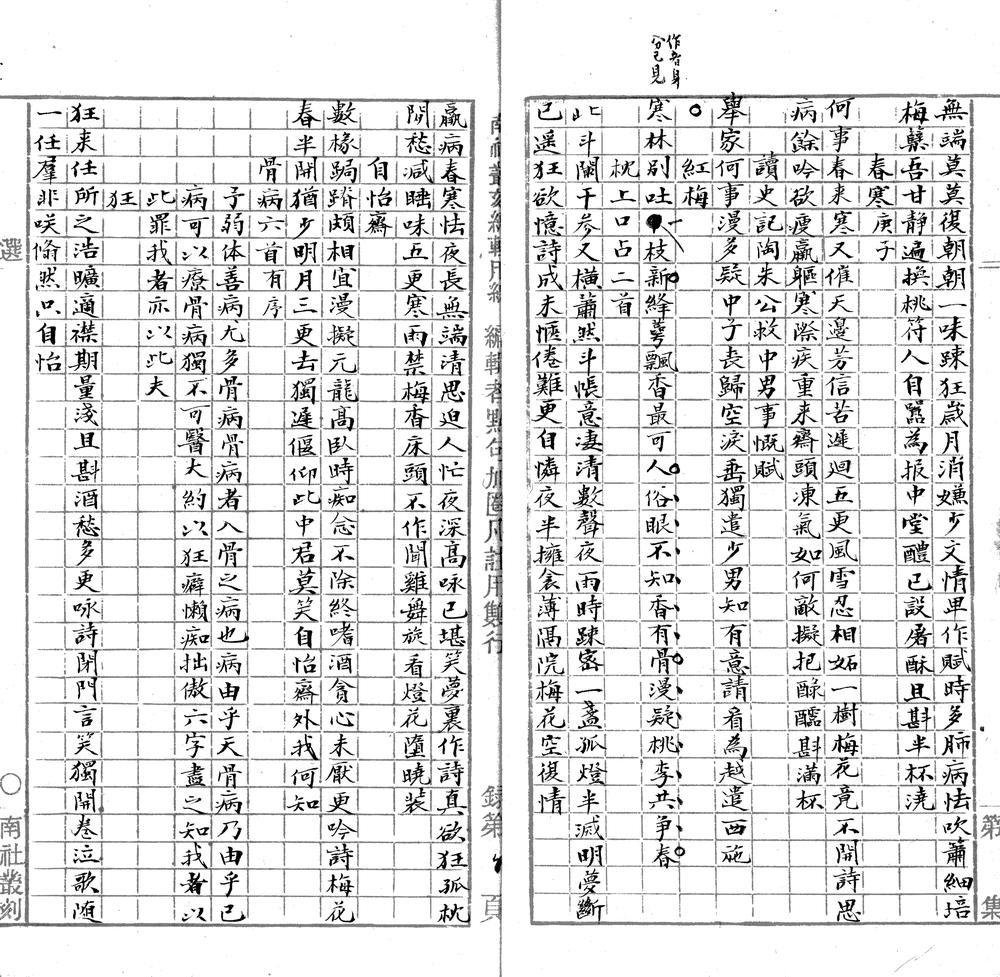 作者身
分已見
無端莫莫復朝朝一味踈狂歲月消嫌少文情卑作賦時多肺病怯吹簫細培
梅蘖吾甘靜遍換桃符人自囂為報中堂醴已設屠酥且斟半杯澆
春寒庚子
何事春來寒又催天邊芳信苦遲迴五更風雪忍相妬一樹梅花竟不開詩思
病餘吟欲瘦羸軀寒際疾重来齋頭凍氣如何敵擬把醁醽斟滿杯
讀史記陶朱公救中男事慨賦
舉家何事漫多疑中子喪歸空淚垂獨遣少男知有意請看為越遣西施
紅梅
寒林别吐一枝新絳萼飄香最可人俗眼不知香有骨漫疑桃李共争春
枕上口占二首
此斗闌干参又横蕭然斗帳意凄清數聲夜雨時踈密一盞孤燈半滅明夢斷
已遥狂欲憶詩成未愜倦難更自憐夜半擁衾薄隔院梅花空復情
羸病春寒怯夜長無端清思迫人忙夜深高咏已堪笑夢裏作詩真欲狂孤枕
閒愁减睡味五更寒雨禁梅香床頭不作聞雞舞旋看燈花墮曉裝
自怡齋
數椽跼蹐頗相宜漫擬元龍高臥時痴念不除終嗜酒貪心未厭更吟詩梅花
春半開猶少明月三更去獨遲偃仰此中君莫笑自怡齋外我何知
骨病六首有序
予弱体善病尤多骨病骨病者入骨之病也病由乎天骨病乃由乎已
病可以療骨病獨不可醫大約以狂癖懶痴拙傲六字盡之知我者以
此罪我者亦以此夫
狂
狂来任所之浩曠適襟期量淺且斟酒愁多更咏詩閉門言笑獨開卷泣歌随
一任羣非咲翛然只自怡
南社叢刻
編輯者點句加圈凡註用雙行
錄第 頁
第 集
選
〇
南社叢刻